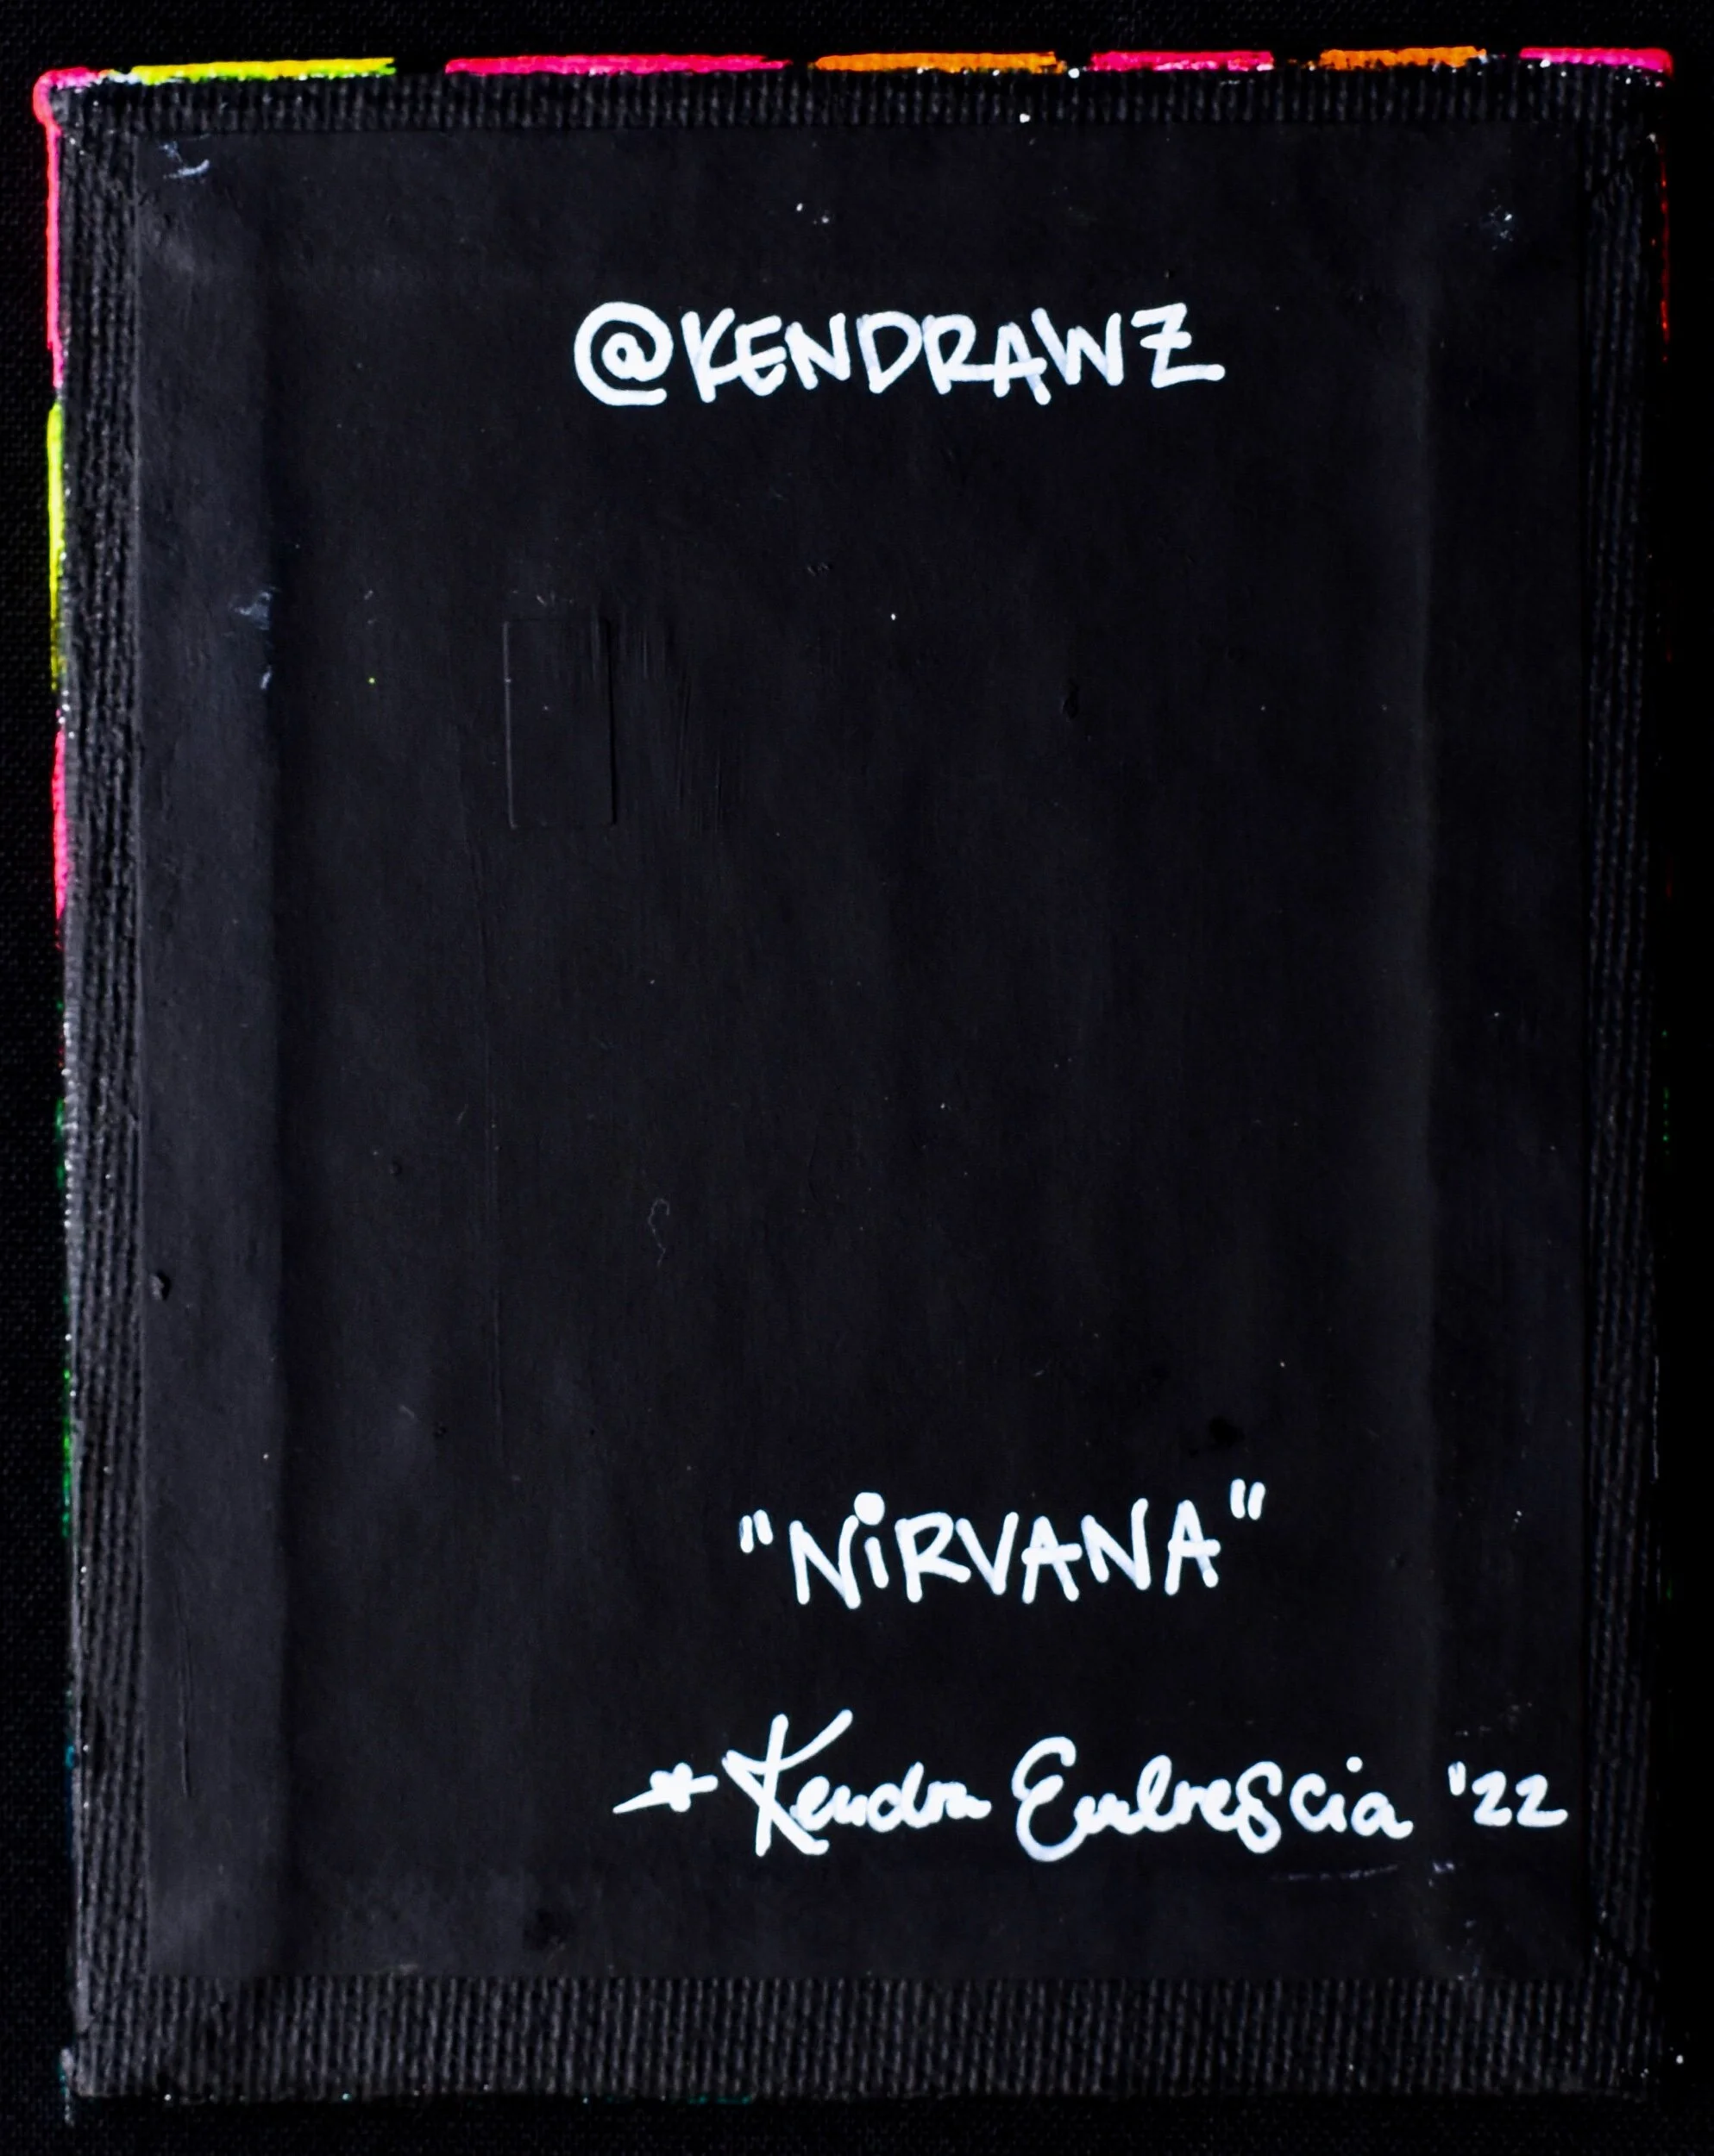 @KENDRAWZ
"NiRVANA"
Kendra Embrescia '22